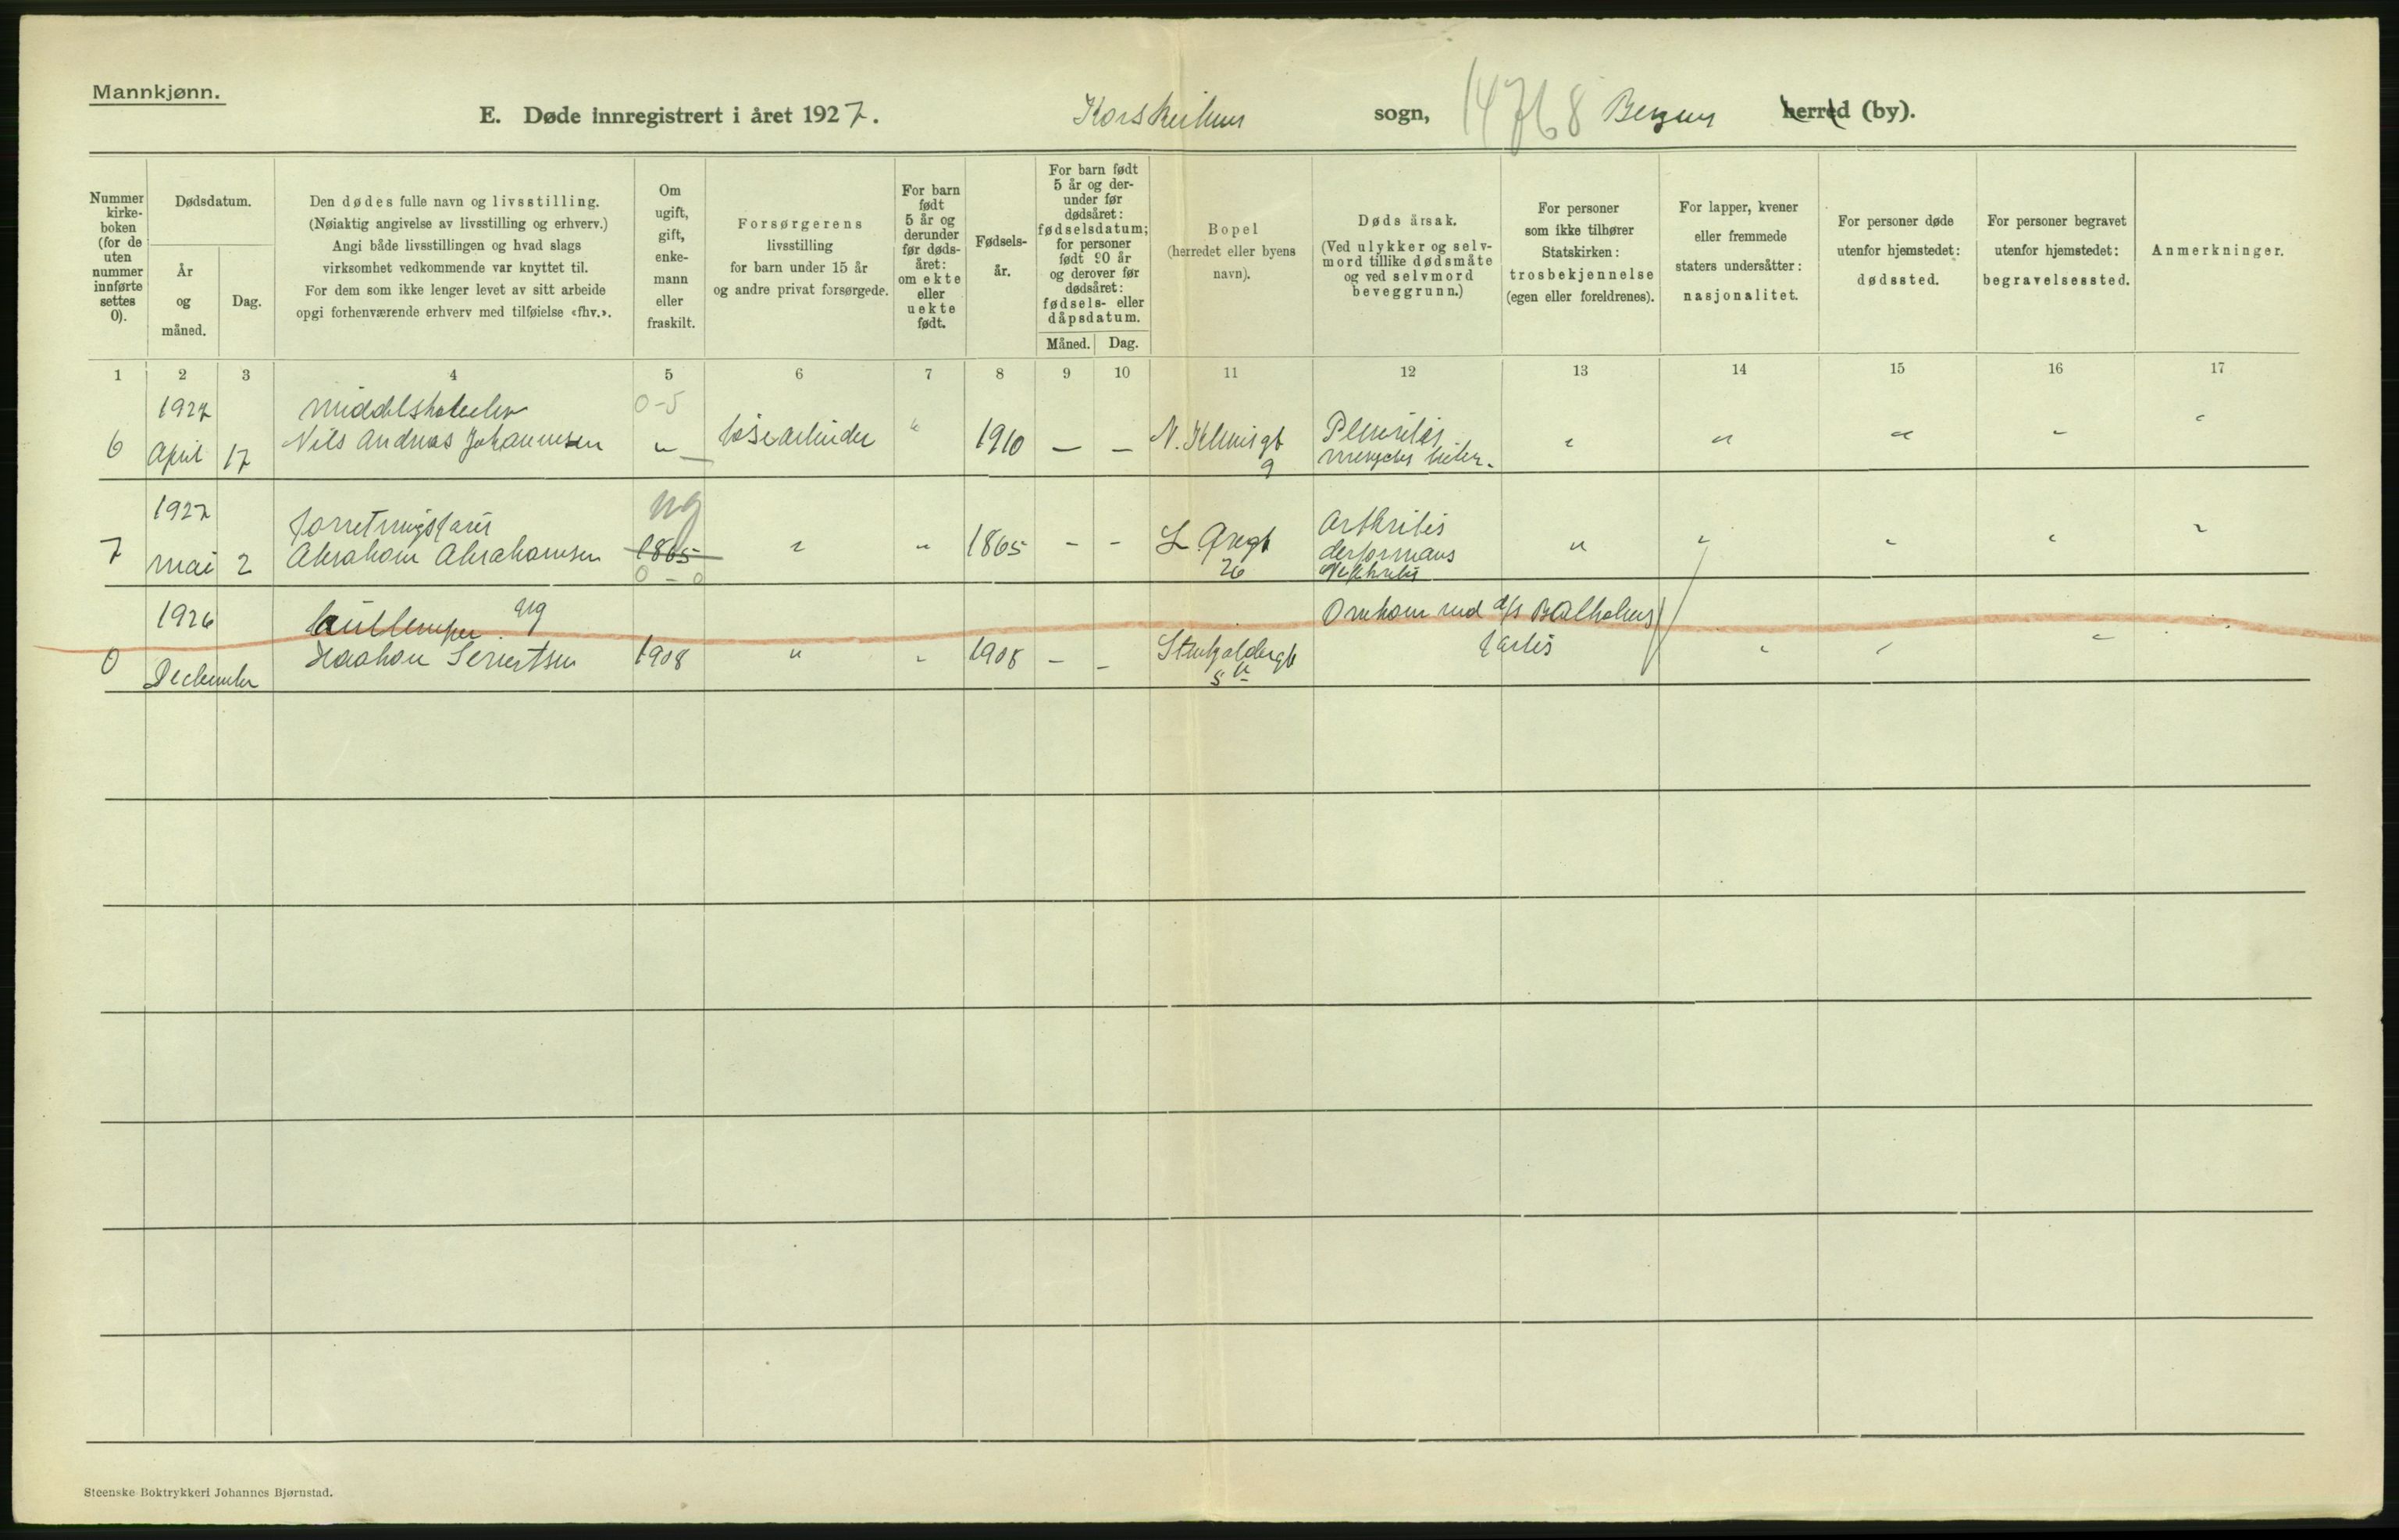 Mannkjønn.
E. Døde innregistrert i året 1927.
Korskirken sogn, 14768 Bergen herred (by).
Nummer
kirke-
boken
(for de
uten
nummer
innførte
settes
0).
Dødsdatum.
År
og
måned.
Dag.
Den dødes fulle navn og livsstilling.
(Nøiaktig angivelse av livsstilling og erhverv.)
Angi både livsstillingen og hvad slags
virksomhet vedkommende var knyttet til.
For dem som ikke lenger levet av sitt arbeide
opgi forhenværende erhverv med tilføielse «fhv.».
Om
ugift,
gift,
enke-
mann
eller
fraskilt.
Forsørgerens
livsstilling
for barn under 15 år
og andre privat forsørgede.
For barn
født
5 år og
derunder
før døds-
året:
om ekte
eller
uekte
født.
Fødsels-
år.
For barn født
5 år og der-
under før
dødsåret:
fødselsdatum;
for personer
født 90 år
og derover før
dødsåret:
fødsels- eller
dåpsdatum.
Måned. Dag.
Bopel
(herredet eller byens
navn).
Dødsårsak.
(Ved ulykker og selv-
mord tillike dødsmåte
og ved selvmord
beveggrunn.)
For personer
som ikke tilhører
Statskirken:
trosbekjennelse
(egen eller foreldrenes).
For lapper, kvener
eller fremmede
staters undersåtter:
nasjonalitet.
For personer døde
utenfor hjemstedet:
dødssted.
For personer begravet
utenfor hjemstedet:
begravelsessted.
Anmerkninger.
1 2 3 4 5 6 7 8 9 10 11 12 13 14 15 16 17
1927 middelskoleelev 0-5
6 April 17 Nils Andreas Johannesen " løsearbeider " 1910 — — N. Kleivegt Pleuritis " " " " "
9
1927 forretningsfører ug Arthritis
7 mai 2 Abraham Abrahamsen 1865 " " 1865 - - L. Øregt deformans " " " " "
0-0 26 Nephritis
1926 ug Omkom med d/s Balholms
0 December Haakon Severtsen 1908 " " 1908 - - forlis " " "
5
Steenske Boktrykkeri Johannes Bjørnstad.